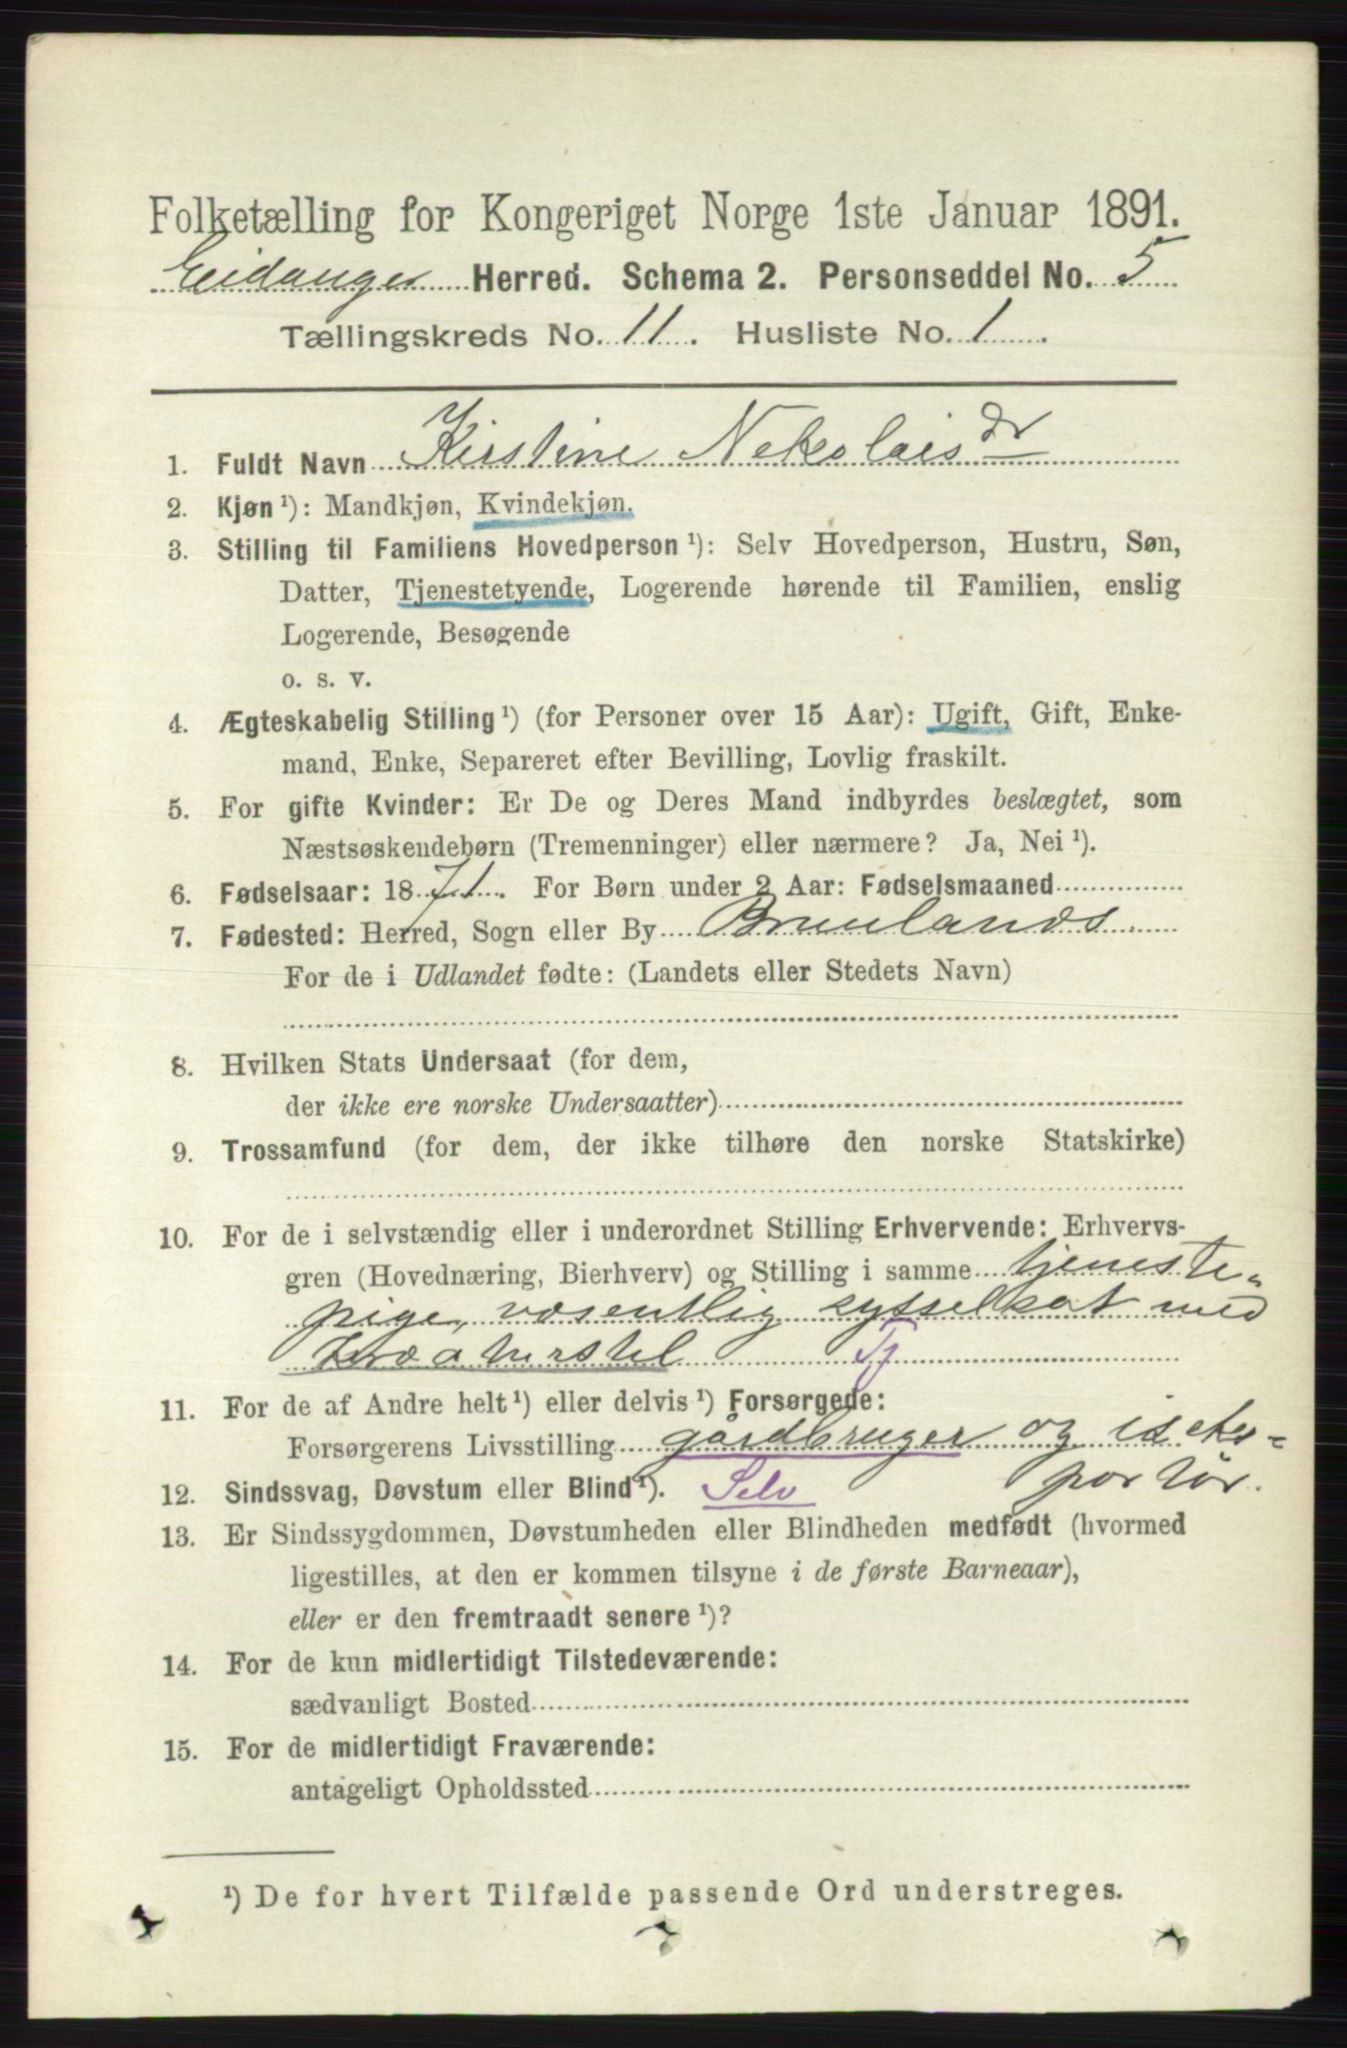 Folketælling for Kongeriget Norge 1ste Januar 1891.
Eidanger Herred. Schema 2. Personseddel No. 5
Tællingskreds No. 11. Husliste No. 1.
1. Fuldt Navn Kirstine Nekolais dr
2. Kjøn ¹): Mandkjøn, Kvindekjøn.
3. Stilling til Familiens Hovedperson ¹): Selv Hovedperson, Hustru, Søn,
Datter, Tjenestetyende, Logerende hørende til Familien, enslig
Logerende, Besøgende
o. s. v.
4. Ægteskabelig Stilling ¹) (for Personer over 15 Aar): Ugift, Gift, Enke-
mand, Enke, Separeret efter Bevilling, Lovlig fraskilt.
5. For gifte Kvinder: Er De og Deres Mand indbyrdes beslægtet, som
Næstsøskendebørn (Tremenninger) eller nærmere? Ja, Nei ¹).
6. Fødselsaar: 1871. For Børn under 2 Aar: Fødselsmaaned
7. Fødested: Herred, Sogn eller By Brunlanæs
For de i Udlandet fødte: (Landets eller Stedets Navn)
8. Hvilken Stats Undersaat (for dem,
der ikke ere norske Undersaatter)
9. Trossamfund (for dem, der ikke tilhøre den norske Statskirke)
10. For de i selvstændig eller i underordnet Stilling Erhvervende: Erhvervs-
gren (Hovednæring, Bierhverv) og Stilling i samme tjeneste-
pige, væsentlig sysselsat med
kreaturstel Tj
11. For de af Andre helt ¹) eller delvis ¹) Forsørgede:
Forsørgerens Livsstilling gårdbruger og iseks-
portør.
12. Sindssvag, Døvstum eller Blind ¹). Selv
13. Er Sindssygdommen, Døvstumheden eller Blindheden medfødt (hvormed
ligestilles, at den er kommen tilsyne i de første Barneaar),
eller er den fremtraadt senere ¹)?
14. For de kun midlertidigt Tilstedeværende:
sædvanligt Bosted
15. For de midlertidigt Fraværende:
antageligt Opholdssted
¹) De for hvert Tilfælde passende Ord understreges.